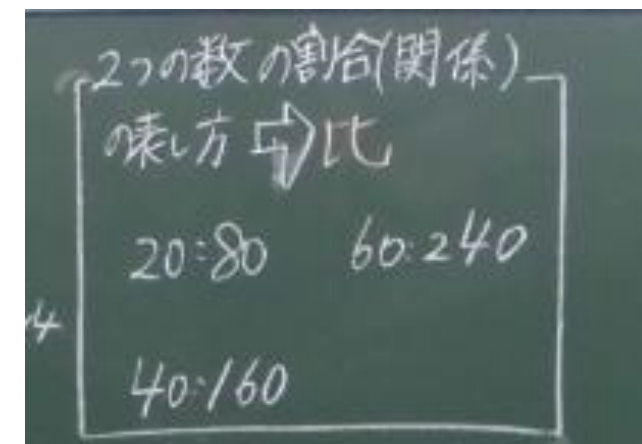 2つの数の割合(関係)
の表し方⇨比
20:80 60:240
4
40:160